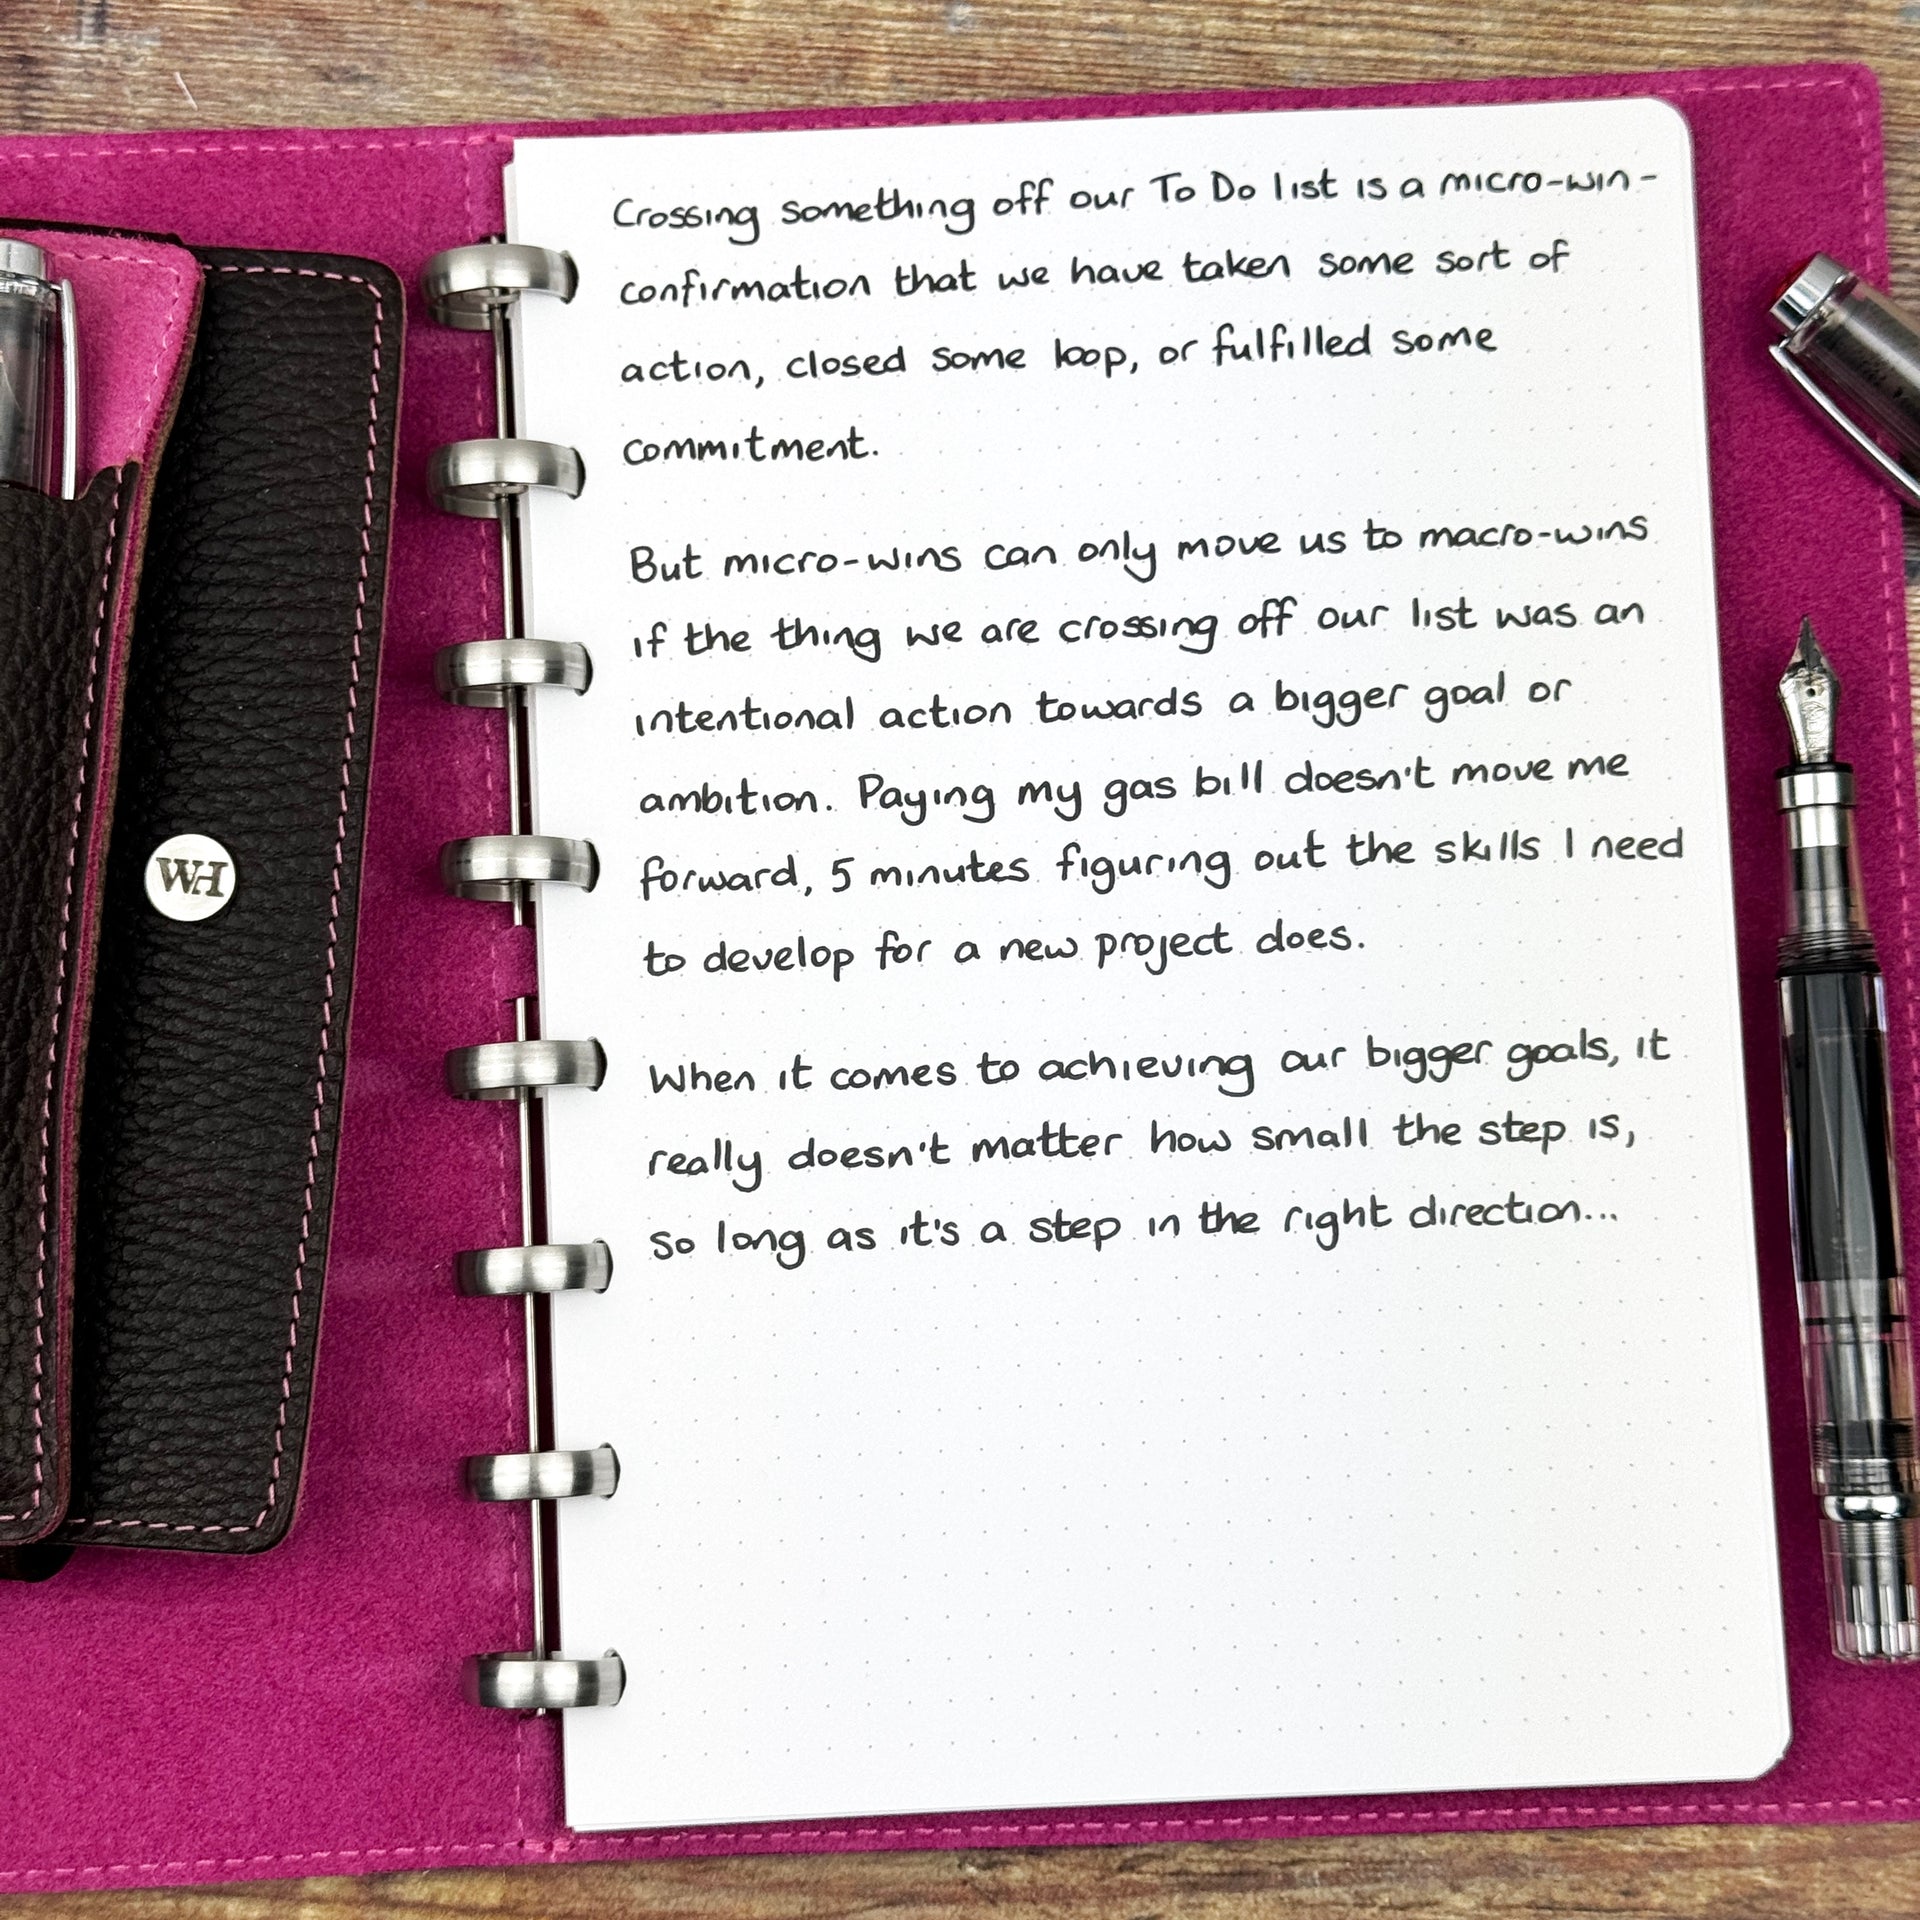 Crossing something off our To Do list is a micro-win-
confirmation that we have taken some sort of
action, closed some loop, or fulfilled some
commitment.
But micro-wins can only move us to macro-wins
if the thing we are crossing off our list was an
intentional action towards a bigger goal or
ambition. Paying my gas bill doesn't move me
forward, 5 minutes figuring out the skills I need
to develop for a new project does.
When it comes to achieving our bigger goals, it
really doesn't matter how small the step is,
so long as it's a step in the right direction...
WH